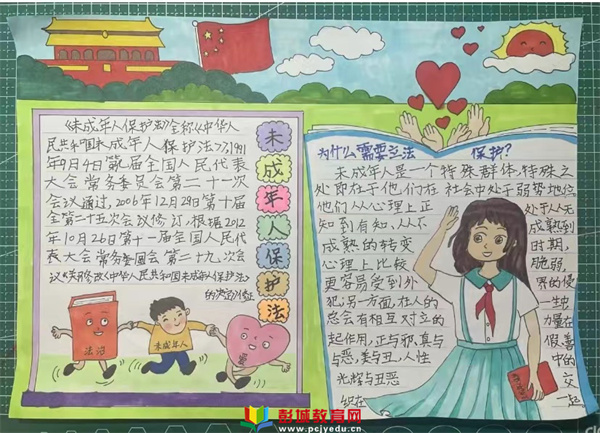 《未成年人保护法》全称《中华人
民共和国未成年人保护法》》1991
年9月4日第七届全国人民代表
大会常务委员会第二十一次
会议通过，2006年12月29日第十届
全第二十五次会议修订，根据2012
年10月26日第十一届全国人民代
表大会常务委员会第二十九次会
议《关于修改《中华人民共和国未成年人保护法》
的决定》修正
未
成
年
人
保
护
法
法治
未成年人
爱
为什么需要立法 保护？
未成年人是一个特殊群体，特殊之
处即在于他们在社会中处于弱势地位
他们从心理上正 处于从无
知到有知，从不 成熟到
成熟的转变 时期，
心理上比较 脆弱，
更容易受到外 界的侵
犯，另一方面，在人的 一生中
总会有相互对立的 力量在
起作用，正与邪，真与 假，善
与恶，美与丑，人性 中的
光辉与丑恶 交
织在 一起
彭城教育网
www.pcjyedu.cn